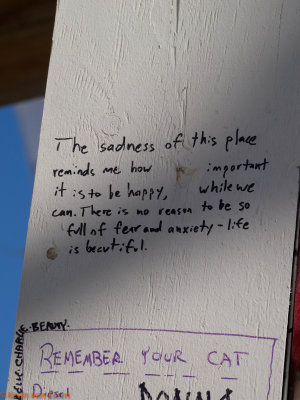 The sadness of this place
reminds me how important
it is to be happy, while we
can. There is no reason to be so
full of fear and anxiety - life
is beautiful.
BEAUTY.
REMEMBER YOUR CAT
Diesel